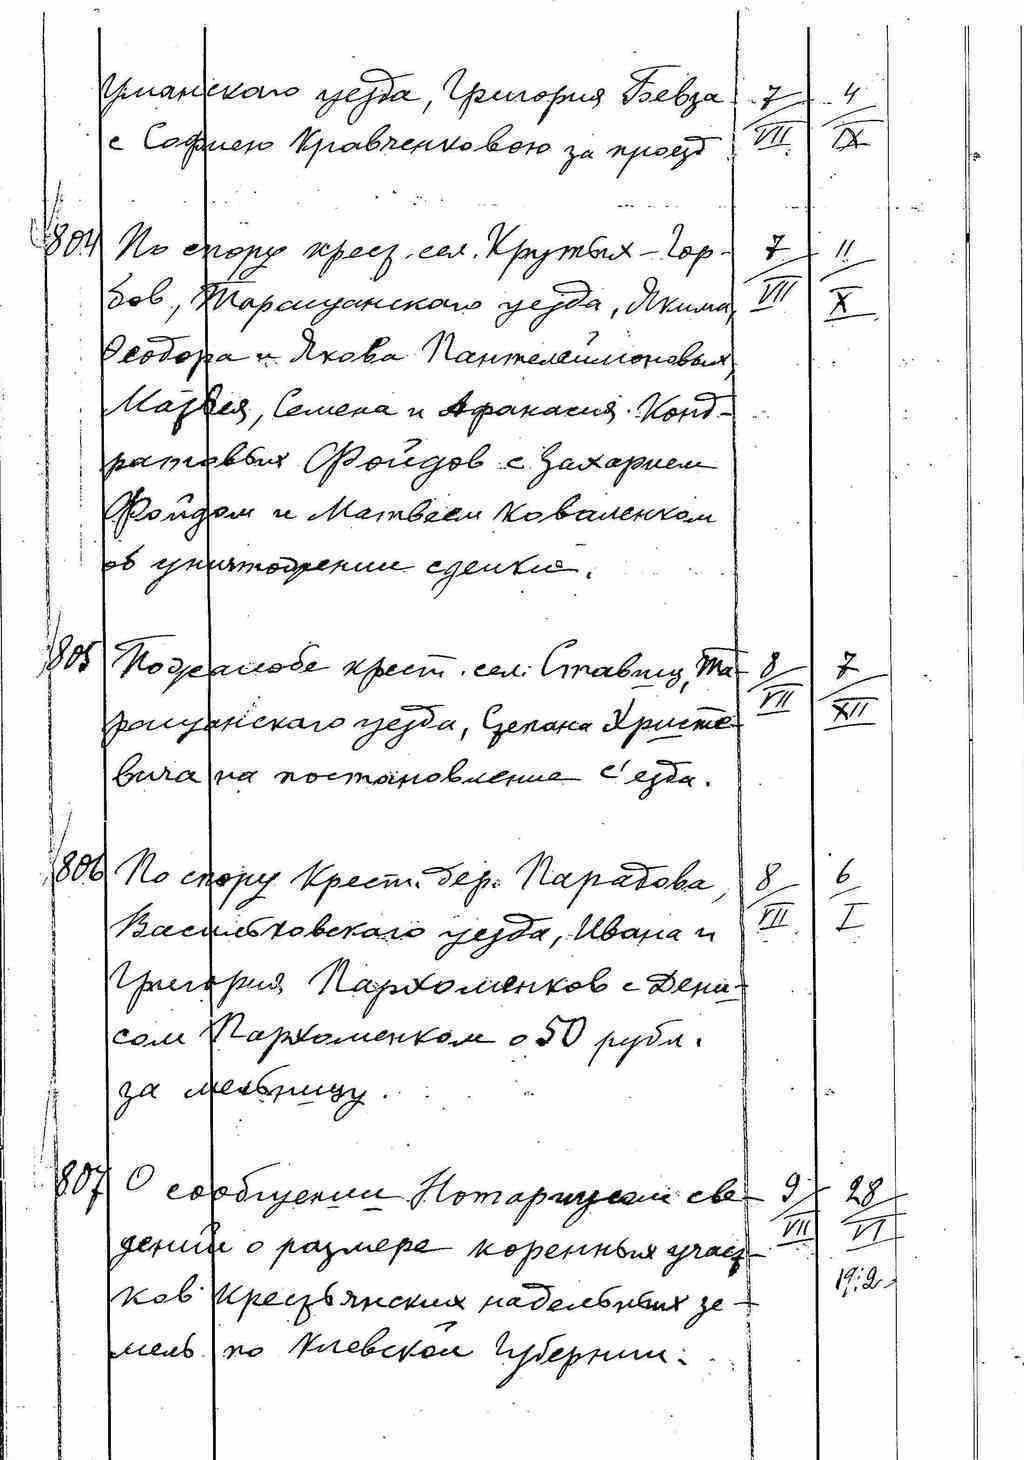 Уманского уезда, Григория Бевза 7/VII 4/IX
с Софиею Кравченковою за проезд
804 По спору крест. сел. Крутых-Гор- 7/VII 11/X
бов, Таращанского уезда, Якима,
Феодора и Якова Пантелеймоновых,
Матвея, Семена и Афанасия Конд-
ратовых Фойдов с Захарием
Фойдом и Матвеем Коваленком
об уничтожении сделки.
805 По жалобе крест. сел. Ставищ, Та- 8/VII 7/XII
ращанского уезда, Степана Христе-
вича на постановление с'езда.
806 По спору Крест. дер. Парадова, 8/VII 6/I
Васильковского уезда, Ивана и
Григория Пархоменков с Дени-
сом Пархоменком о 50 рубл.
за мельницу.
807 О сообщении Нотариусам све- 9/VII 28/VI
дений о размере коренных участ- 1912
ков Крестьянских надельных зе-
мель по Киевской Губернии.